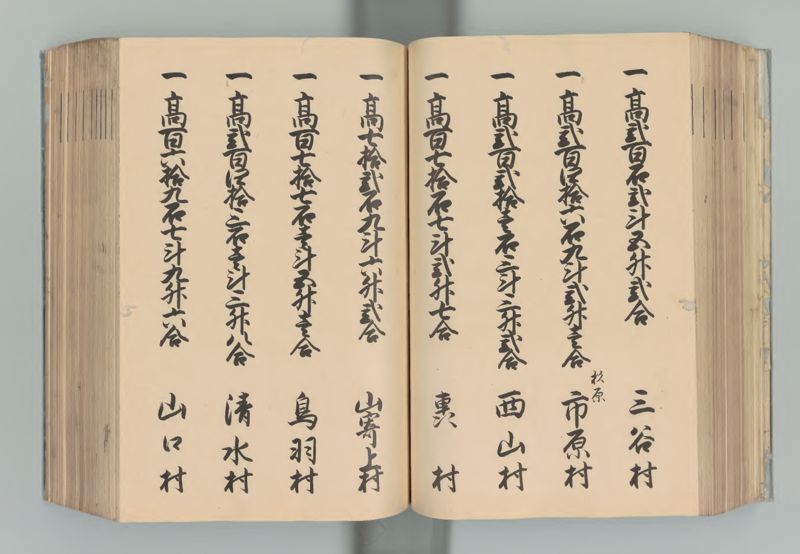 一高弐百石弐斗五升弐合 三谷村
一高弐百四拾六石九斗弐升壱合 市原村
杉原
一高弐百弐拾壱石三斗三升弐合 西山村
一高百七拾石七斗弐升七合 村
一高七拾弐石九斗六升弐合 山寄上村
一高百七拾七石壱斗五升壱合 鳥羽村
一高弐百四拾三石壱斗三升八合 清水村
一高百六拾九石七斗九升六合 山口村